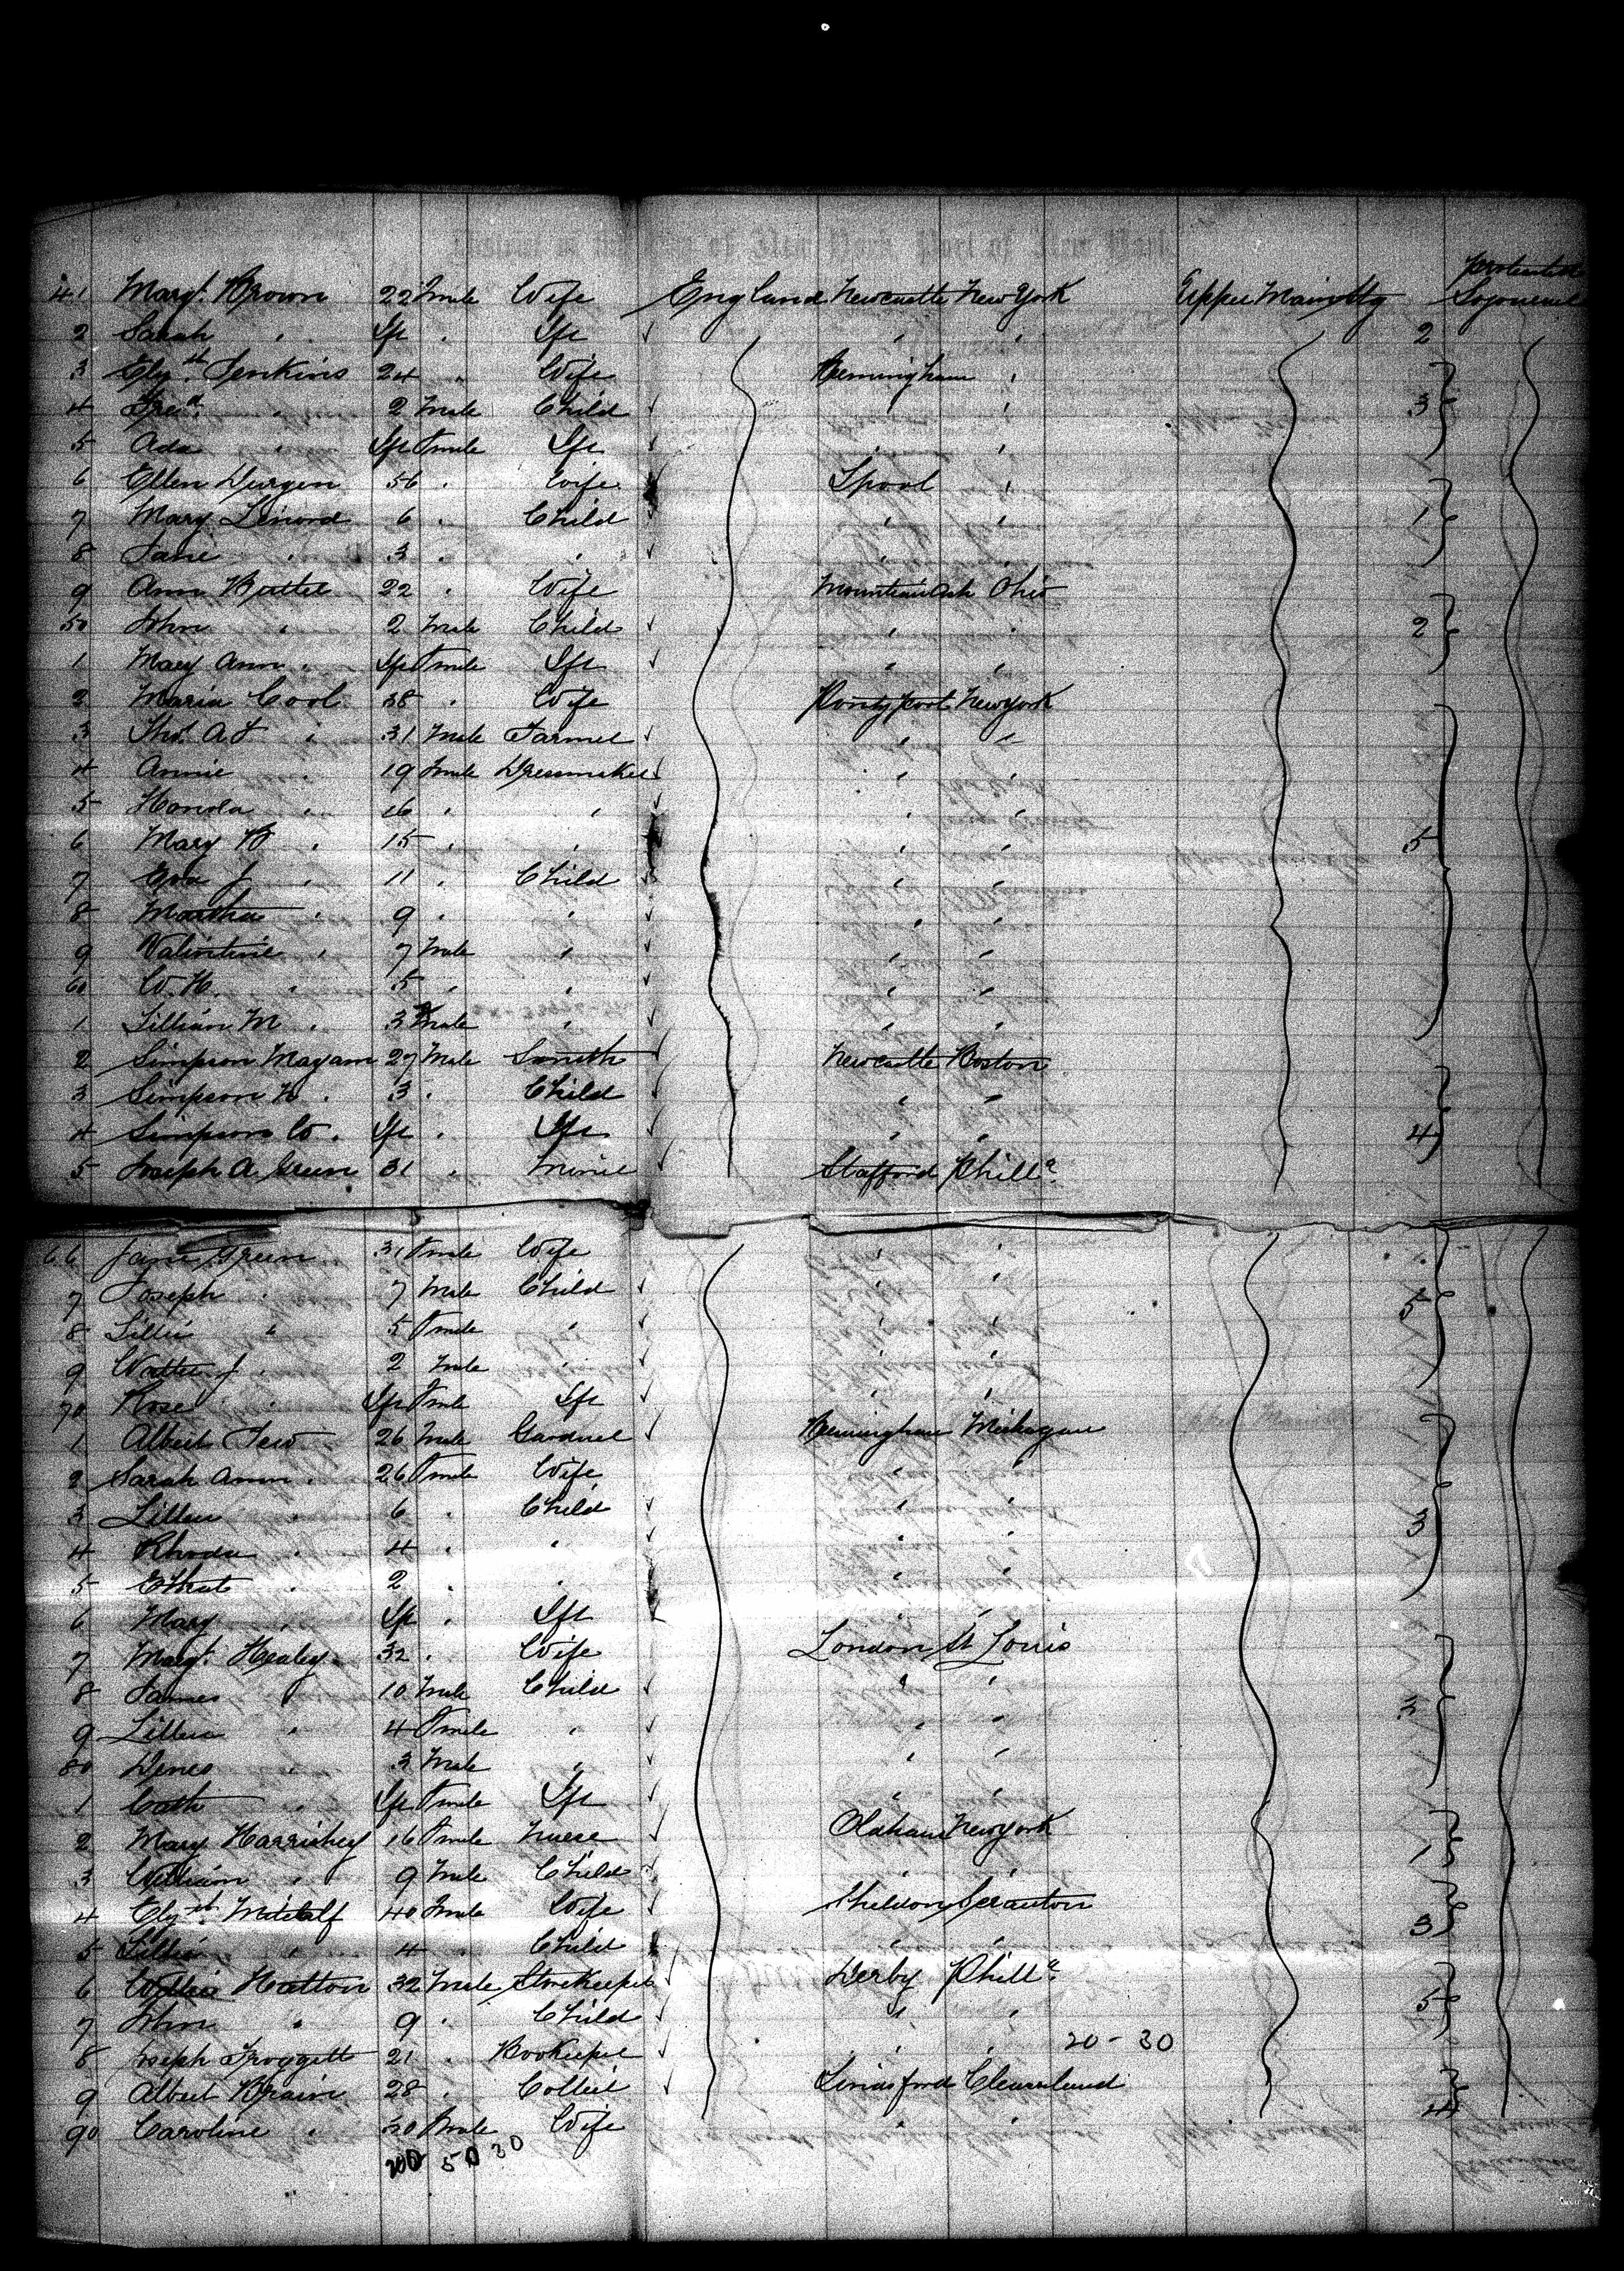 District of the City of New York, Port of New York
protracted
41 Margt. Brown 22 Fmale Wife England Newcastle New York Upper Main Stg Sojourn
2 Sarah " Ift " Ift " " 2
3 Elyth. Jenkins 24 " Wife Birmingham "
4 Fred. " 2 Male Child " " 3
5 Ada " Ift Fmale Ift " "
6 Ellen Durgen 56 " Wife Lpool "
7 Mary Linord 6 " Child " " 1
8 Jane " 3 " " " "
9 Ann Buttle 22 " Wife Mountain Ash Ohio
50 John " 2 Male Child " " 2
1 Mary Ann " Ift Fmale Ift " "
2 Maria Cool 38 " Wife Pontypool New York
3 Thos. A J " 31 Male Farmer " "
4 Annie " 19 Fmale Dressmaker " "
5 " 16 " " " "
6 Mary B " 15 " " " " 5
7 Eva J " 11 " Child " "
8 Martha " 9 " " " "
9 Valentine " 7 Male " " "
60 W. H. " 5 " " " "
1 Lillian M " 3 Fmale " " "
2 Simpson Mayam 27 Male Smith Newcastle Boston
3 Simpson H " 3 " Child " "
4 Simpson W. Ift " Ift " " 4
5 Joseph A Green 31 " Miner Stafford Philla.
66 Jane Green 31 Fmale Wife " "
7 Joseph " 7 Male Child " " 5
8 Lillie " 5 Fmale " " "
9 Walter J " 2 Male " " "
70 Rose " Ift Fmale Ift " "
1 Albert Tew 26 Male Gardner Birmingham
2 Sarah Ann " 26 Fmale Wife " "
3 Lillian " 6 " Child " " 3
4 Rhoda " 4 " " " "
5 " 2 " " " "
6 Mary " Ift " Ift " "
7 Margt. Healey 32 " Wife London St Louis
8 James " 10 Male Child " "
9 Lillian " 4 Fmale " " " 3
80 " 3 Male " " "
1 Cath " Ift Fmale Ift " "
2 Mary 16 Fmale Nurse New York
3 William " 9 Male Child " " 1
4 Elyth. Metcalf 40 Fmale Wife Sheldon Scranton
5 Lillie " 4 " Child " " 3
6 Hatton 32 Male Storekeeper Derby Philla.
7 John " 9 " Child " " 5
8 Joseph Froggett 21 " Bookeeper " " 20-30
9 Albert Brain 28 " Collier
90 Caroline " 30 Fmale Wife " " 4
200 50 30